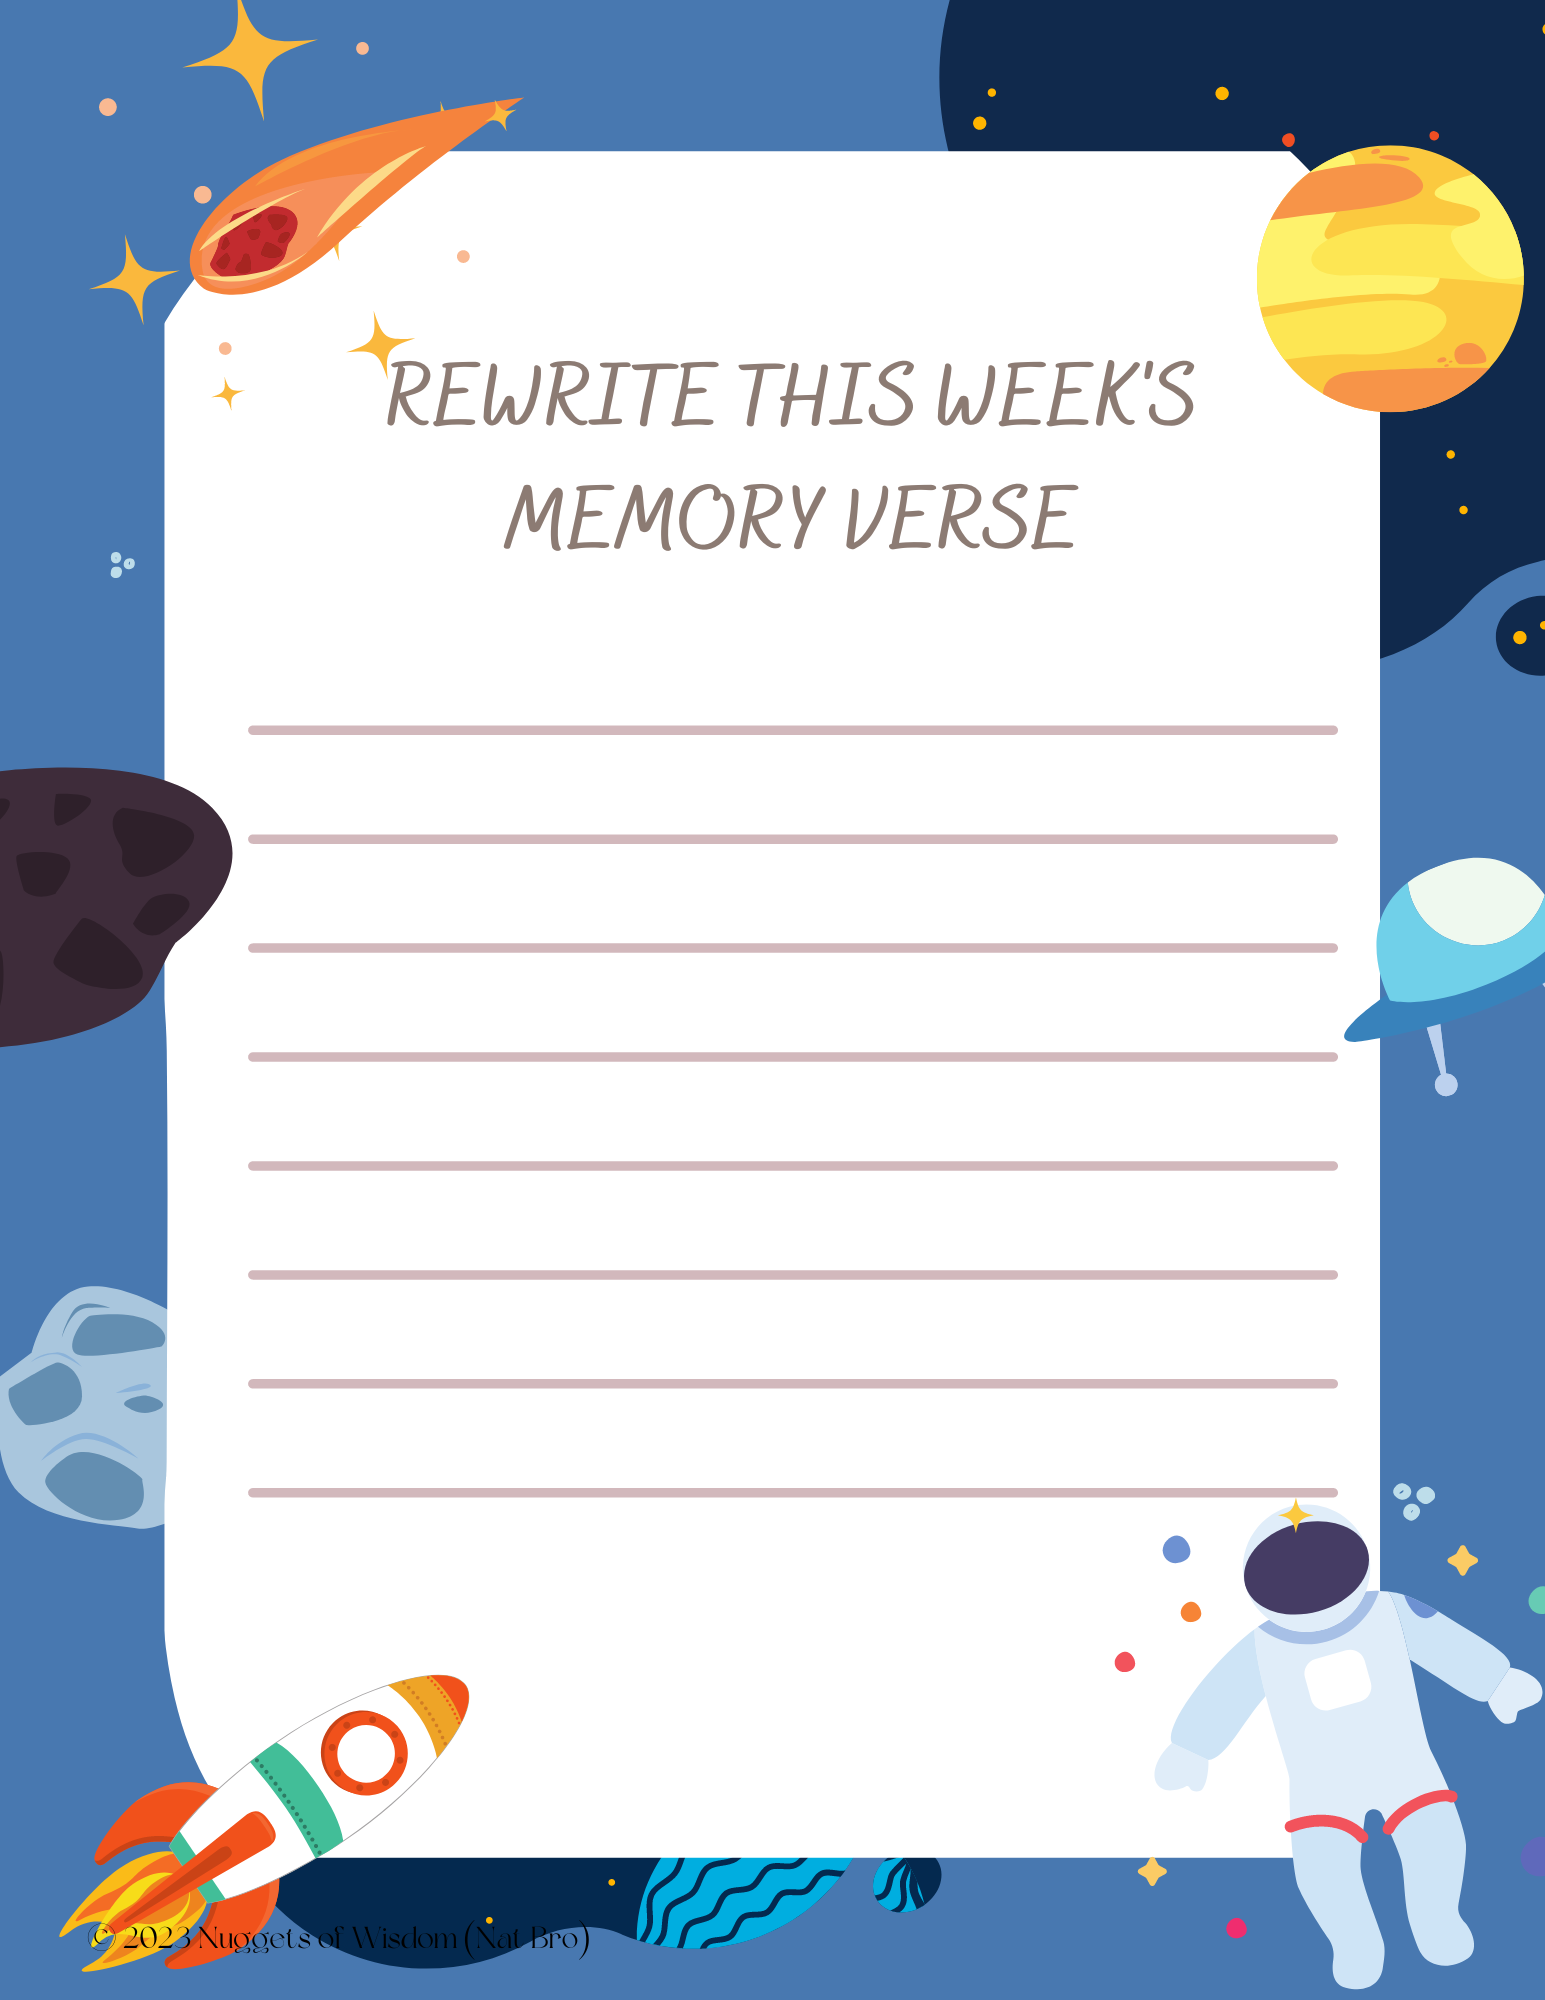 REWRITE THIS WEEK'S
MEMORY VERSE
© 2023 Nuggets of Wisdom (Nat Bro)